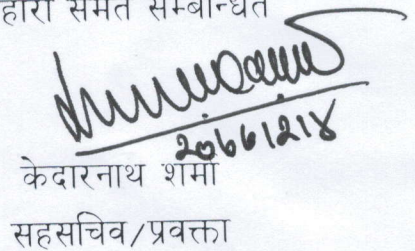 हारी समेत सम्बन्धित
2066|2|4
केदारनाथ शर्मा
सहसचिव/प्रवक्ता